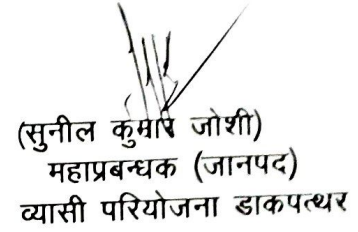 (सुनील कुमार जोशी)
महाप्रबन्धक (जानपद)
व्यासी परियोजना डाकपत्थर